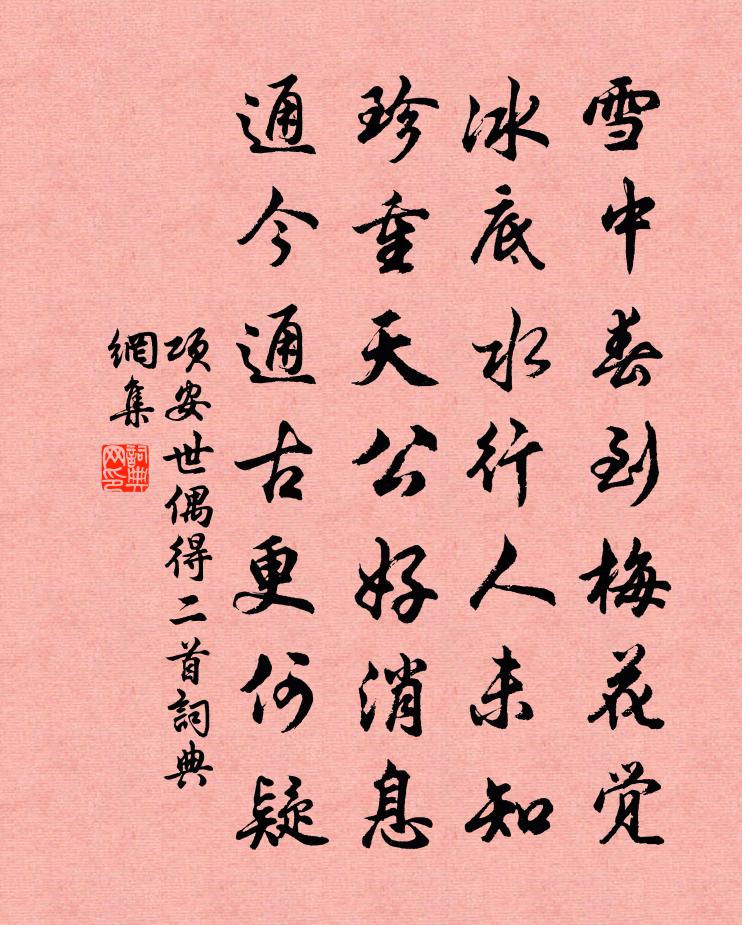 雪中春到梅花觉
冰底水行人未知
珍重天公好消息
通今通古更何疑
项安世偶得二首詞典
網集
詞典
网印